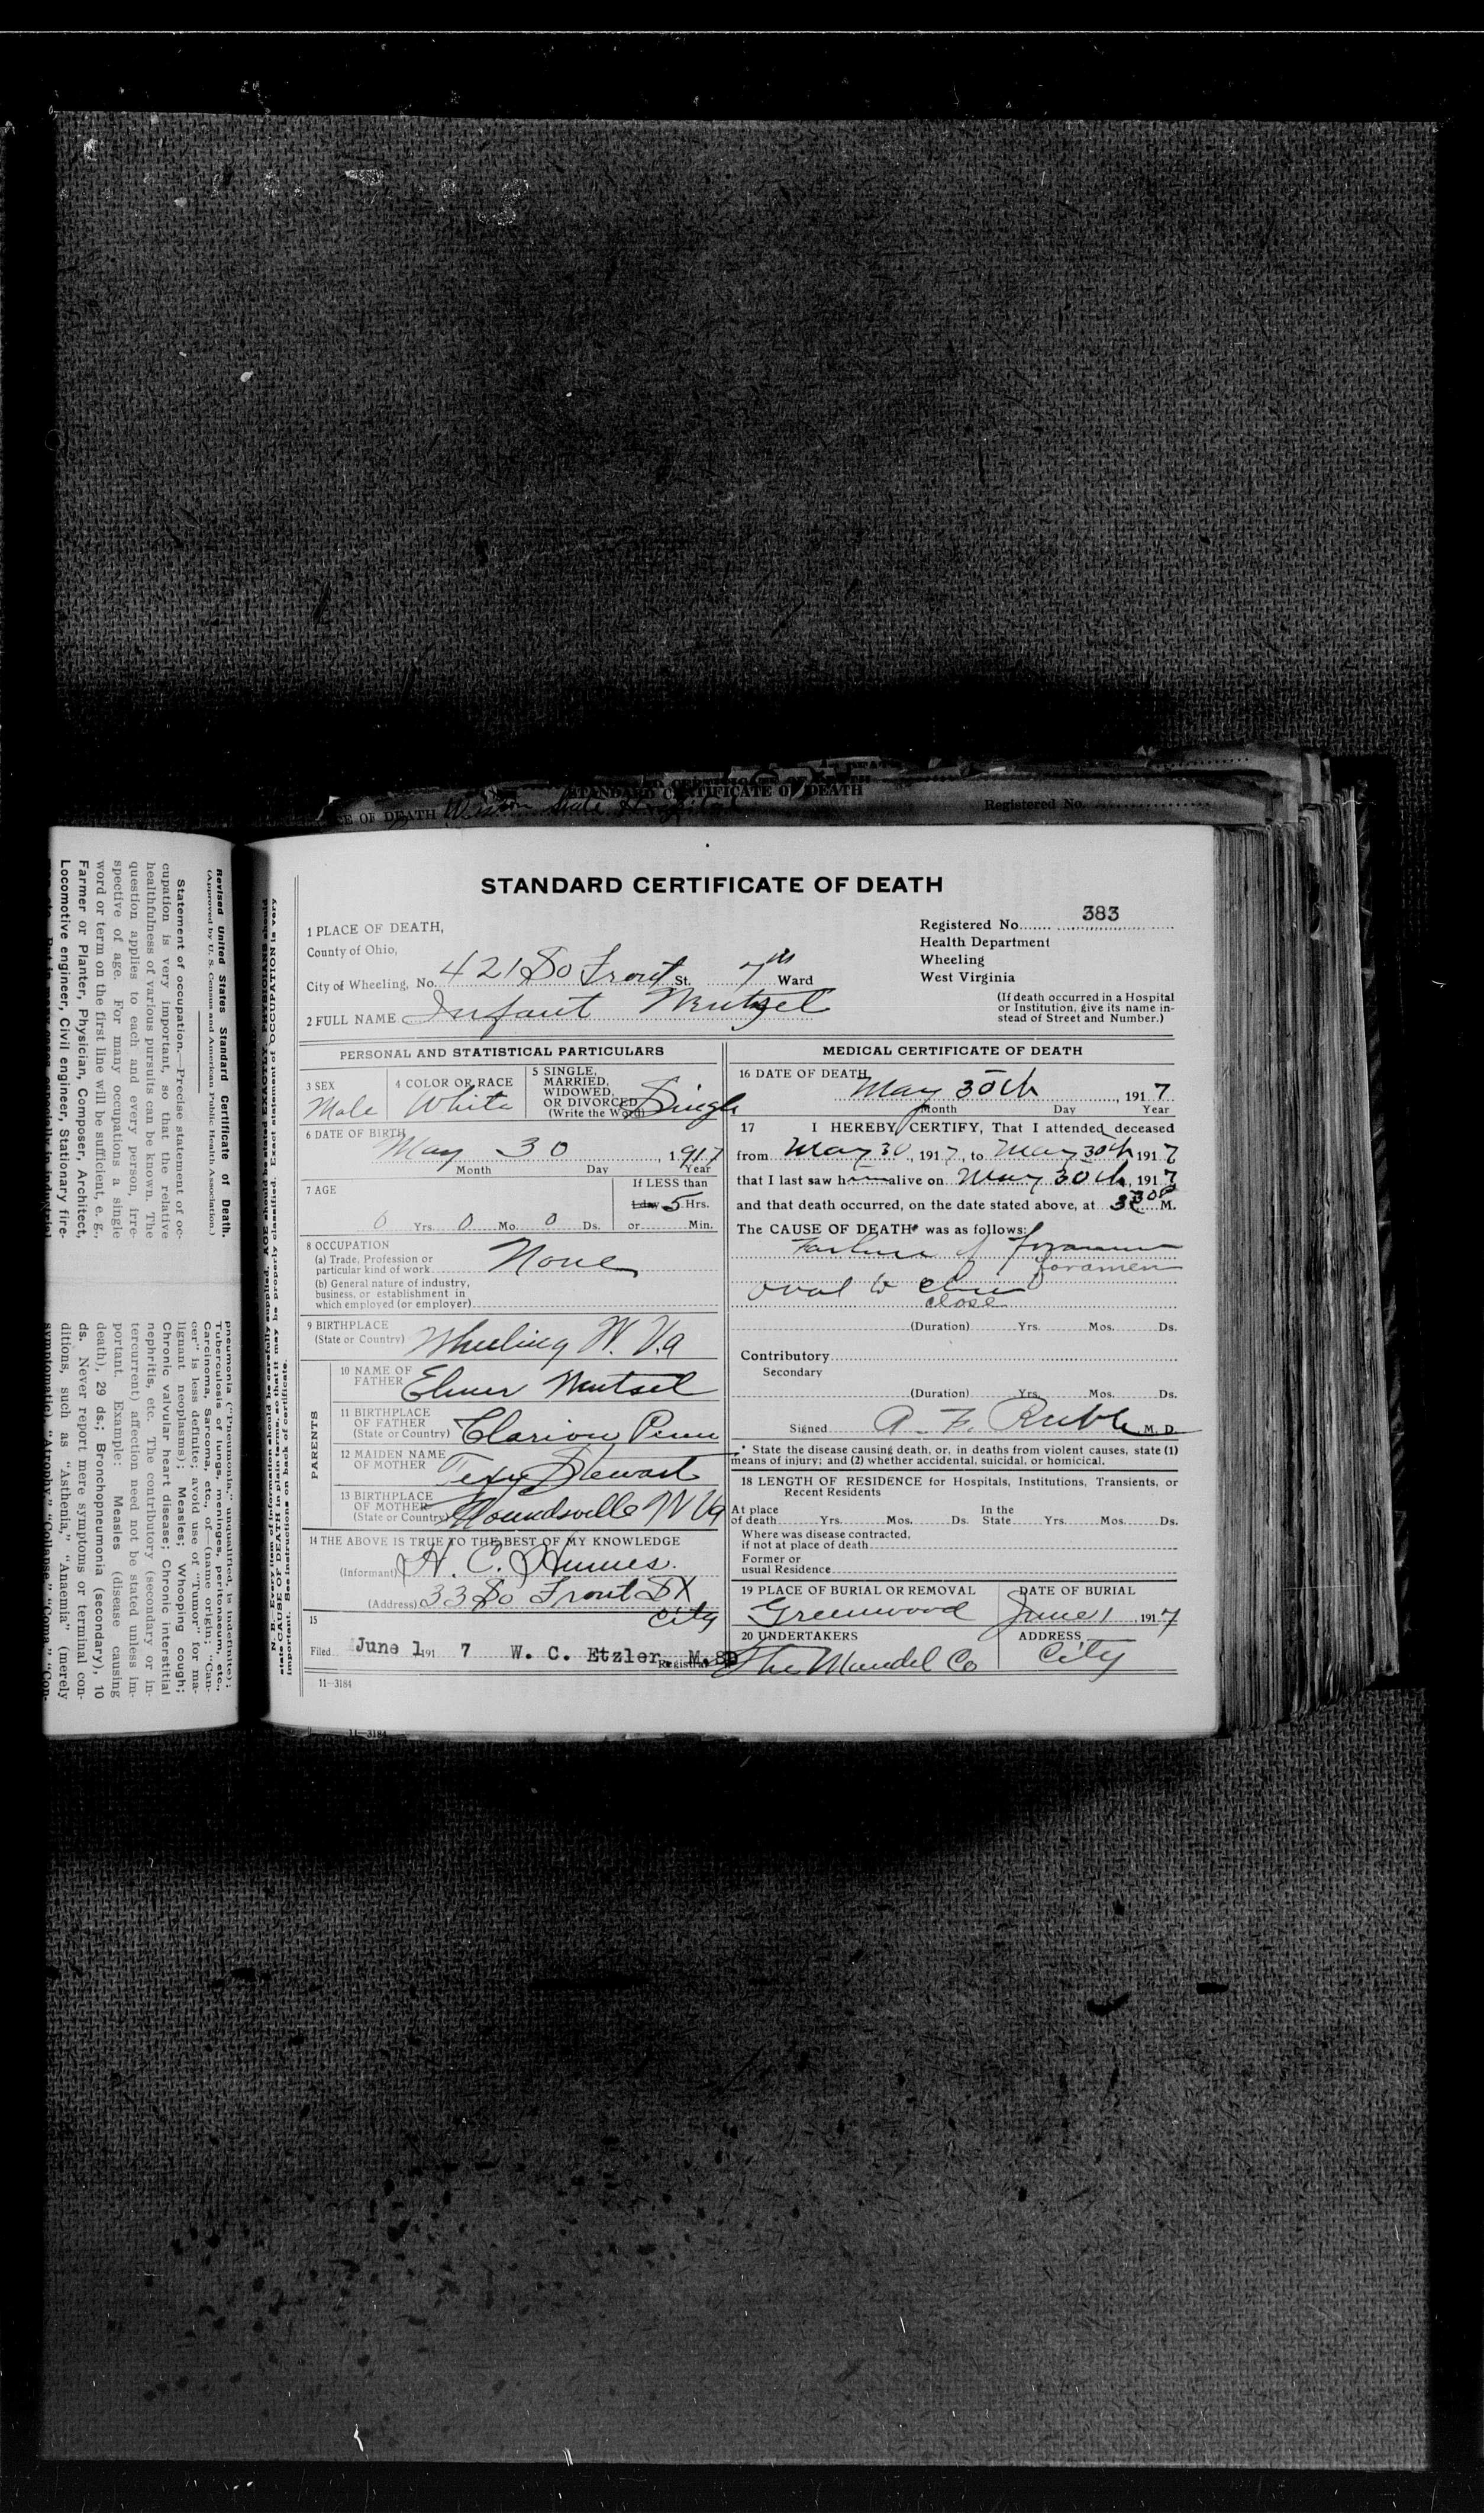 STANDARD CERTIFICATE OF DEATH
CE OF DEATH State Hospital
Registered No.
STANDARD CERTIFICATE OF DEATH
1 PLACE OF DEATH,
County of Ohio,
City of Wheeling, No. 421 So Front St. 7th Ward
2 FULL NAME Infant Wentzel
Registered No. 383
Health Department
Wheeling
West Virginia
(If death occurred in a Hospital
or Institution, give its name in-
stead of Street and Number.)
PERSONAL AND STATISTICAL PARTICULARS
3 SEX
Male
4 COLOR OR RACE
White
5 SINGLE,
MARRIED,
WIDOWED,
OR DIVORCED
(Write the Word) Single
6 DATE OF BIRTH
May 30, 1917
Month Day Year
7 AGE
0 Yrs. 0 Mo. 0 Ds.
If LESS than
1 day 5 Hrs.
or Min.
8 OCCUPATION
(a) Trade, Profession or
particular kind of work None
(b) General nature of industry,
business, or establishment in
which employed (or employer)
9 BIRTHPLACE
(State or Country) Wheeling W. Va
PARENTS
10 NAME OF
FATHER Elmer Wentzel
11 BIRTHPLACE
OF FATHER
(State or Country) Clarion Penn
12 MAIDEN NAME
OF MOTHER Stewart
13 BIRTHPLACE
OF MOTHER
(State or Country) Moundsville W Va
14 THE ABOVE IS TRUE TO THE BEST OF MY KNOWLEDGE
(Informant) H. C. Humes.
(Address) 33 So Front St
City
15
Filed June 1 191 7 W. C. Etzler, M. D
Registrar
11-3184
MEDICAL CERTIFICATE OF DEATH
16 DATE OF DEATH
May 30th, 1917
Month Day Year
17 I HEREBY CERTIFY, That I attended deceased
from May 30, 1917, to May 30th 1917
that I last saw him alive on May 30th, 1917
and that death occurred, on the date stated above, at 3 30 P M.
The CAUSE OF DEATH* was as follows:
Failure of foramen
foramen
oval to close
close
(Duration) Yrs. Mos. Ds.
Contributory
Secondary
(Duration) Yrs. Mos. Ds.
Signed A. F. Ruble M. D.
* State the disease causing death, or, in deaths from violent causes, state (1)
means of injury; and (2) whether accidental, suicidal, or homicical.
18 LENGTH OF RESIDENCE for Hospitals, Institutions, Transients, or
Recent Residents
At place
of death Yrs. Mos. Ds.
In the
State Yrs. Mos. Ds.
Where was disease contracted,
if not at place of death
Former or
usual Residence
19 PLACE OF BURIAL OR REMOVAL
Greenwood
DATE OF BURIAL
June 1, 1917
20 UNDERTAKERS
The Mendel Co
ADDRESS
City
N. B.—Every item of information should be carefully supplied. AGE should be stated EXACTLY. PHYSICIANS should
state CAUSE OF DEATH in plain terms, so that it may be properly classified. Exact statement of OCCUPATION is very
important. See instructions on back of certificate.
Revised United States Standard Certificate of Death.
(Approved by U. S. Census and American Public Health Association.)
Statement of occupation.—Precise statement of oc-
cupation is very important, so that the relative
healthfulness of various pursuits can be known. The
question applies to each and every person, irre-
spective of age. For many occupations a single
word or term on the first line will be sufficient, e. g.,
Farmer or Planter, Physician, Composer, Architect,
Locomotive engineer, Civil engineer, Stationary fire-
pneumonia ("Pneumonia," unqualified, is indefinite);
Tuberculosis of lungs, meninges, peritonaeum, etc.,
Carcinoma, Sarcoma, etc., of—(name origin; "Can-
cer" is less definite; avoid use of "Tumor" for ma-
lignant neoplasms); Measles; Whooping cough;
Chronic valvular heart disease; Chronic interstitial
nephritis, etc. The contributory (secondary or in-
tercurrent) affection need not be stated unless im-
portant. Example: Measles (disease causing
death), 29 ds.; Bronchopneumonia (secondary), 10
ds. Never report mere symptoms or terminal con-
ditions, such as "Asthenia," "Anaemia" (merely
symptomatic), "Atrophy," "Collapse," "Coma," "Con-
11-3184